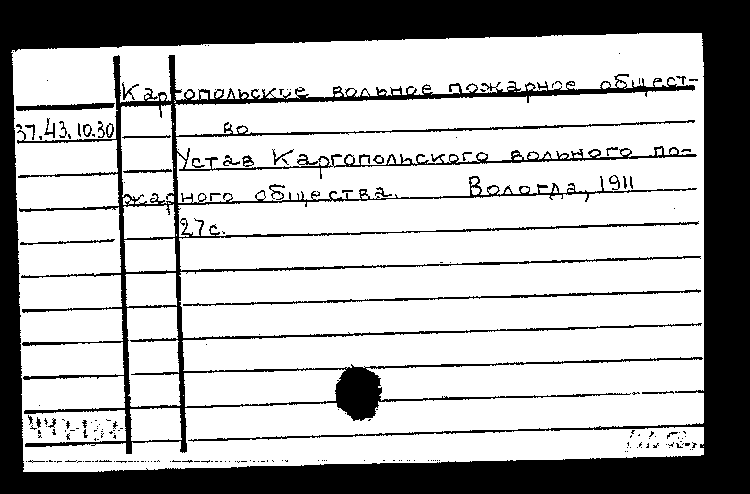 Каргопольские вольное пожарное общест-
37.43.10.30 во
Устав Каргопольского вольного по-
жарного общества. Вологда, 1911
27с.